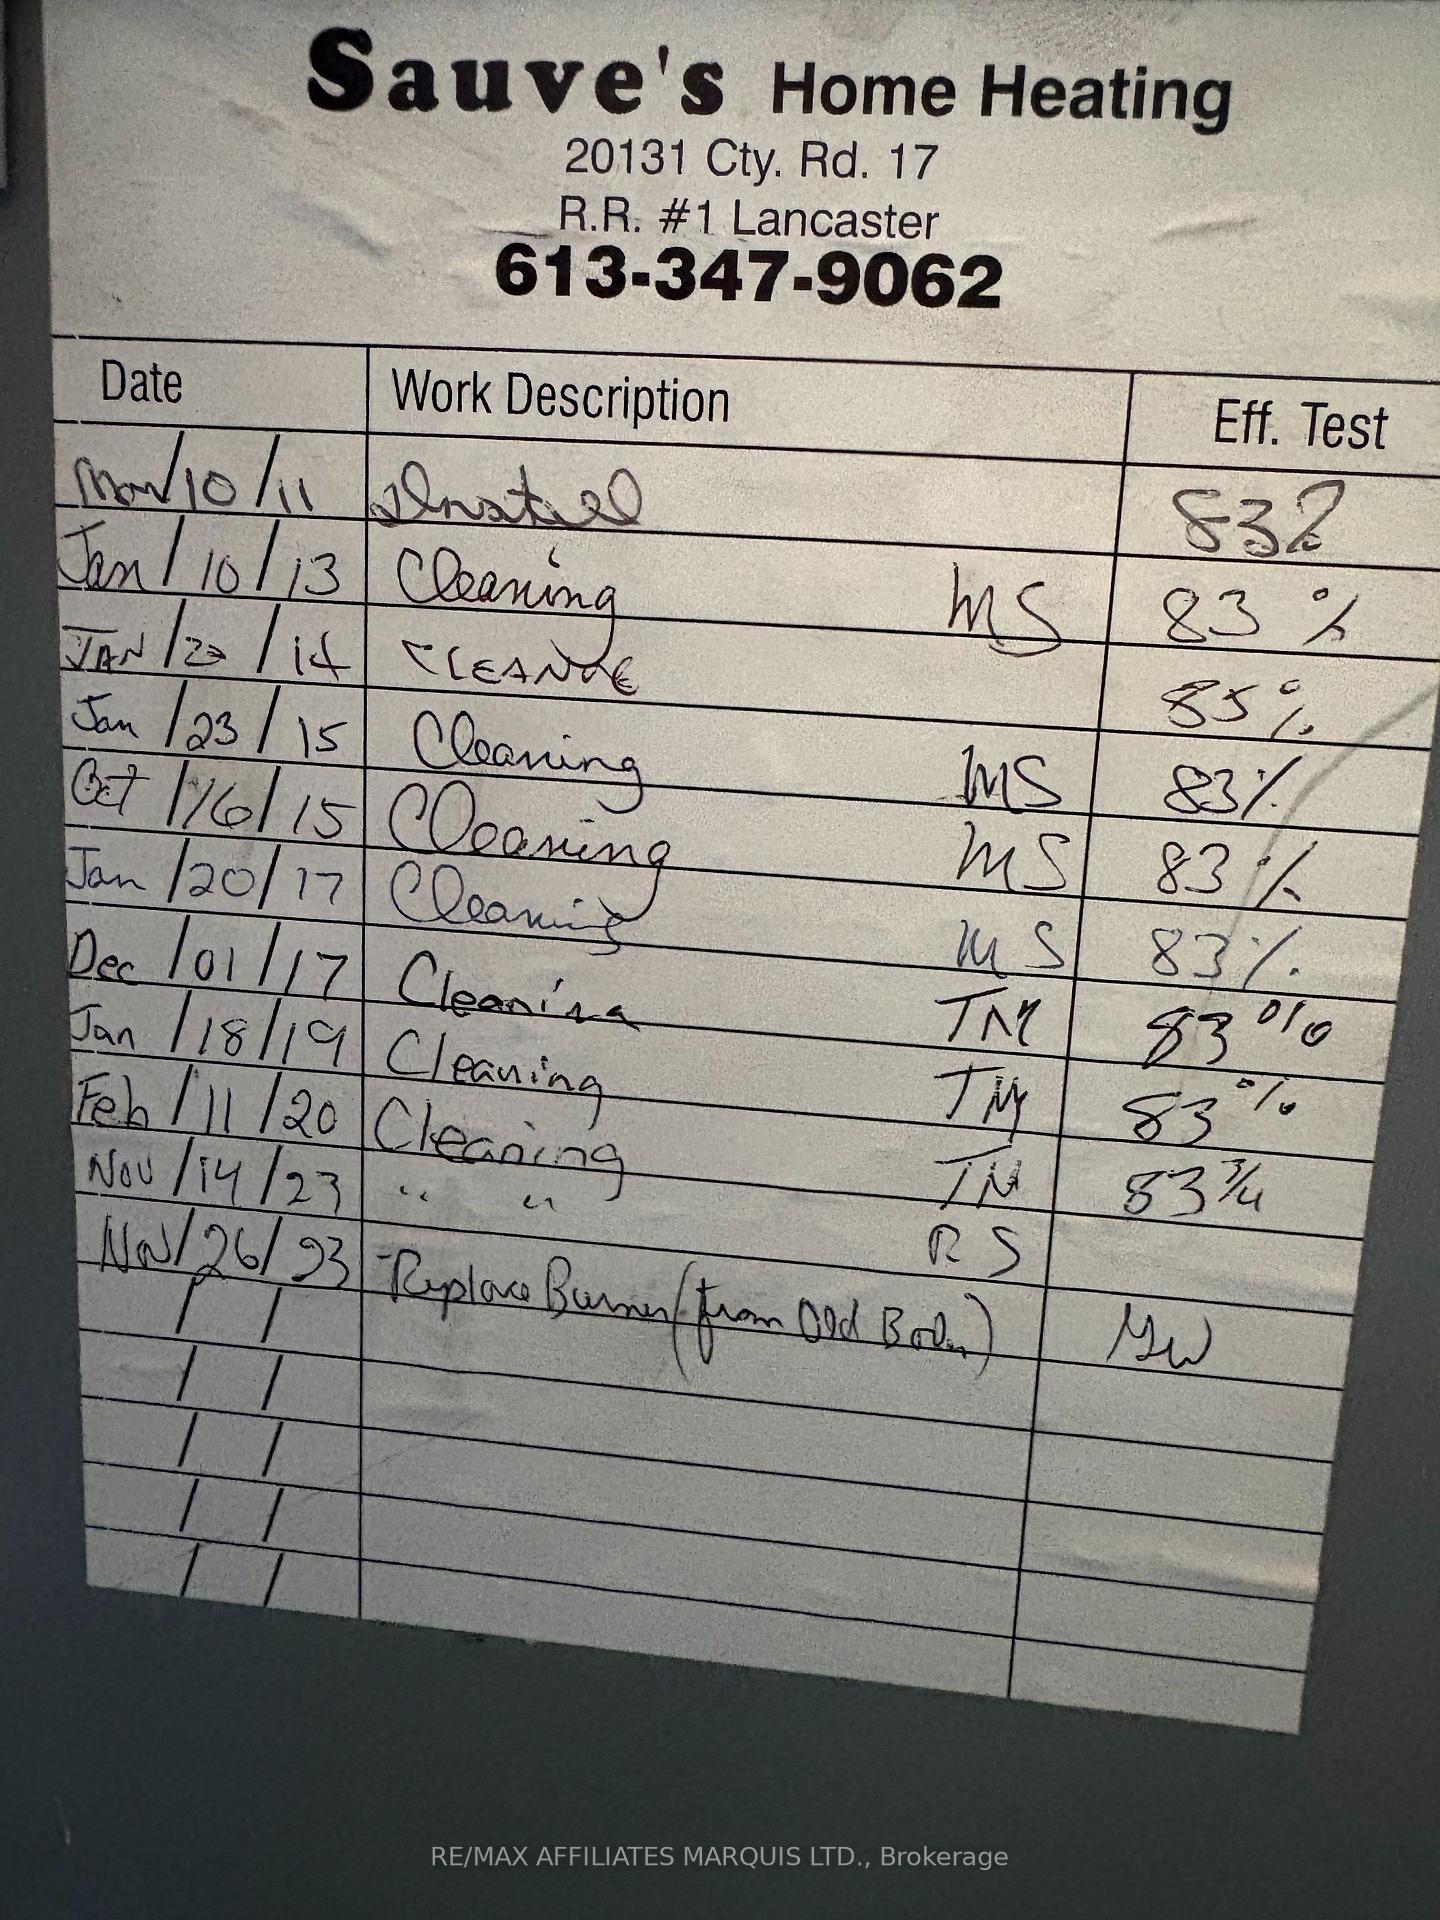 Sauve's Home Heating
20131 Cty. Rd. 17
R.R. #1 Lancaster
613-347-9062
Date Work Description Eff. Test
/10/11 Install 83%
Jan/10/13 Cleaning MS 83%
JAN/ /14 85%
Jan/23/15 Cleaning MS 83%
Oct/16/15 Cleaning MS 83%
Jan/20/17 Cleaning MS 83%
Dec/01/17 Cleaning TM 83%
Jan/18/19 Cleaning TM 83%
Feb/11/20 Cleaning TM 83
Nov/14/23 " " RS
Nov/26/23 -Replace Burner (from Old )
RE/MAX AFFILIATES MARQUIS LTD., Brokerage